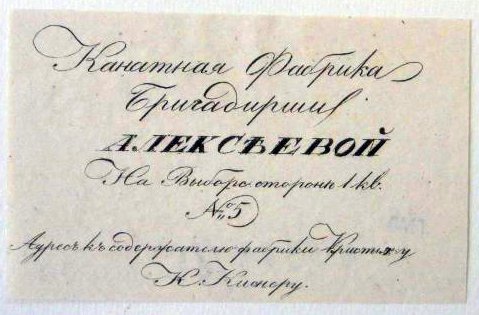 Канатная Фабрика
Бригадирши
АЛЕКСѢЕВОЙ
На Выборг. сторонѣ 1 кв.
№ 5
Адресъ къ содержателю фабрики
К.